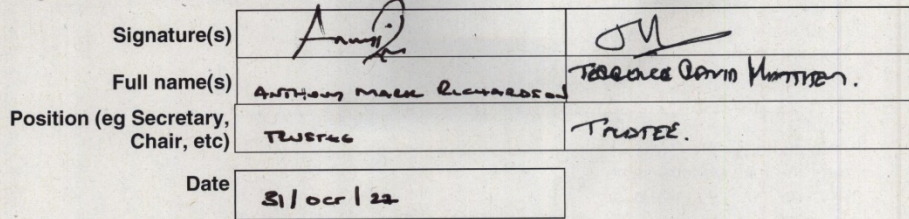 Signature(s)
Full name(s) ANTHONY MARK RICHARDSON TERRENCE DAVID
Position (eg Secretary,
Chair, etc) TRUSTEE TRUSTEE.
Date 31/OCT/22